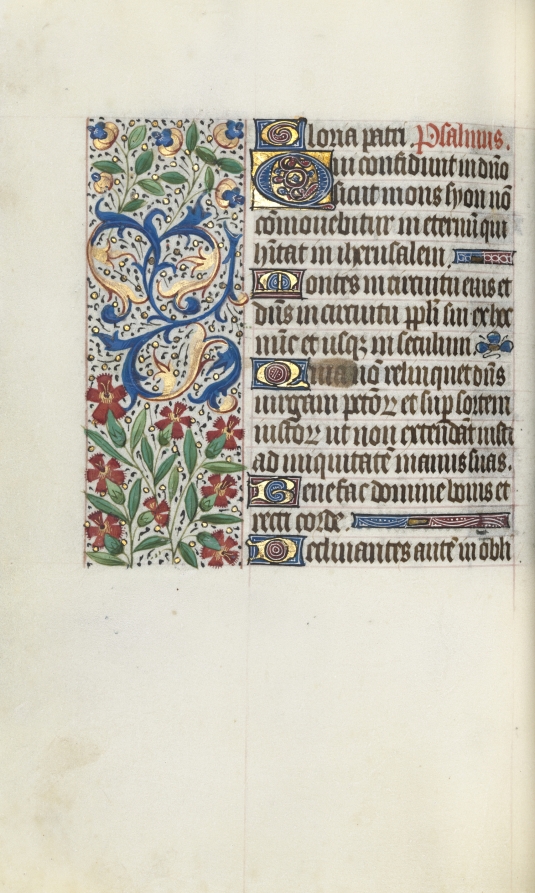 Gloria patri. Psalmus.
Qui confidunt in dño
sicut mons syon nõ
cõmovebitur in eternũ qui
hĩtat in iherusalem
Montes in circuitu eius et
dñs in circuitu ppłi sui ex hoc
nũc et usqꝫ in seculum.
Quia nõ relinquet dñs
virgam pctõꝝ et sup sortem
iustoꝝ ut non extendãt iusti
ad iniquitatẽ manus suas.
Benefac domine bonis et
recti corde
Declinantes autẽ in obli